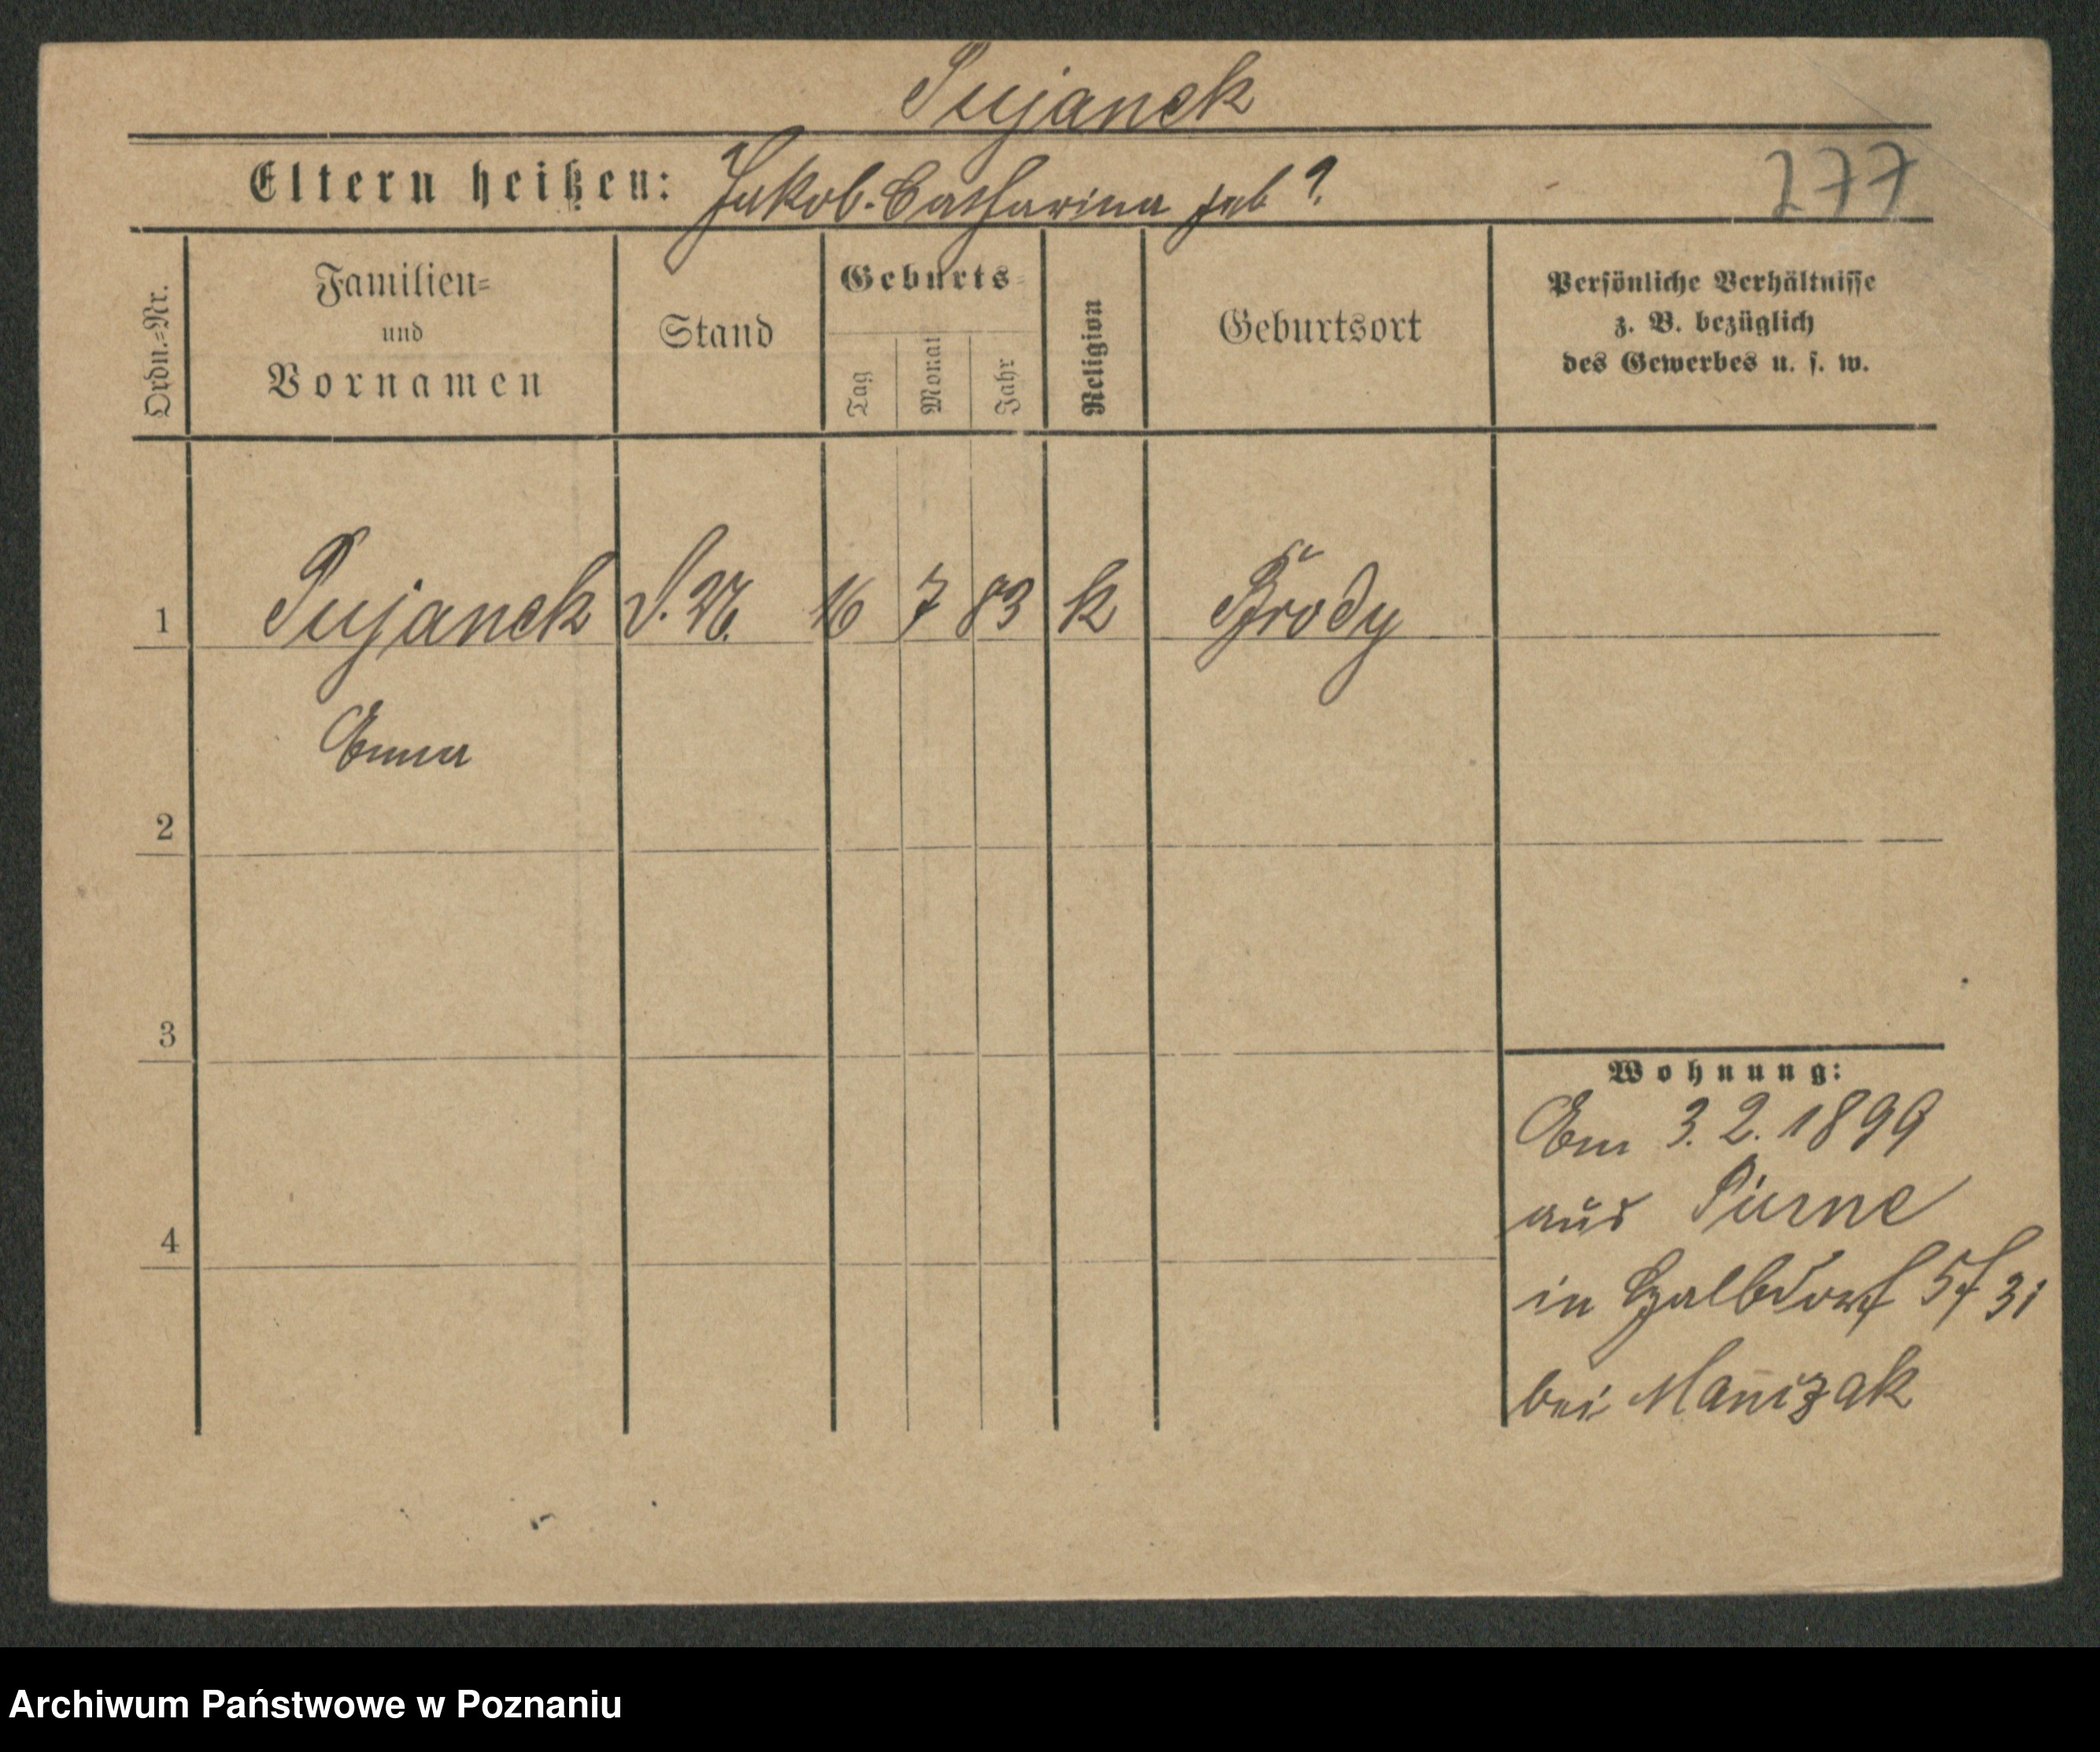 Pujanek
Eltern heißen: Jakob. Catharina geb ?
277
Ordn.=Nr.
Familien=
und
Vornamen
Stand
Geburts=
Tag
Monat
Jahr
Religion
Geburtsort
Persönliche Verhältnisse
z. B. bezüglich
des Gewerbes u. s. w.
1 Pujanek 16 7 83 k Brody
Anna
2
3
4
Wohnung:
Am 3. 2. 1899
aus Pinne
in
bei Manizak
Archiwum Państwowe w Poznaniu